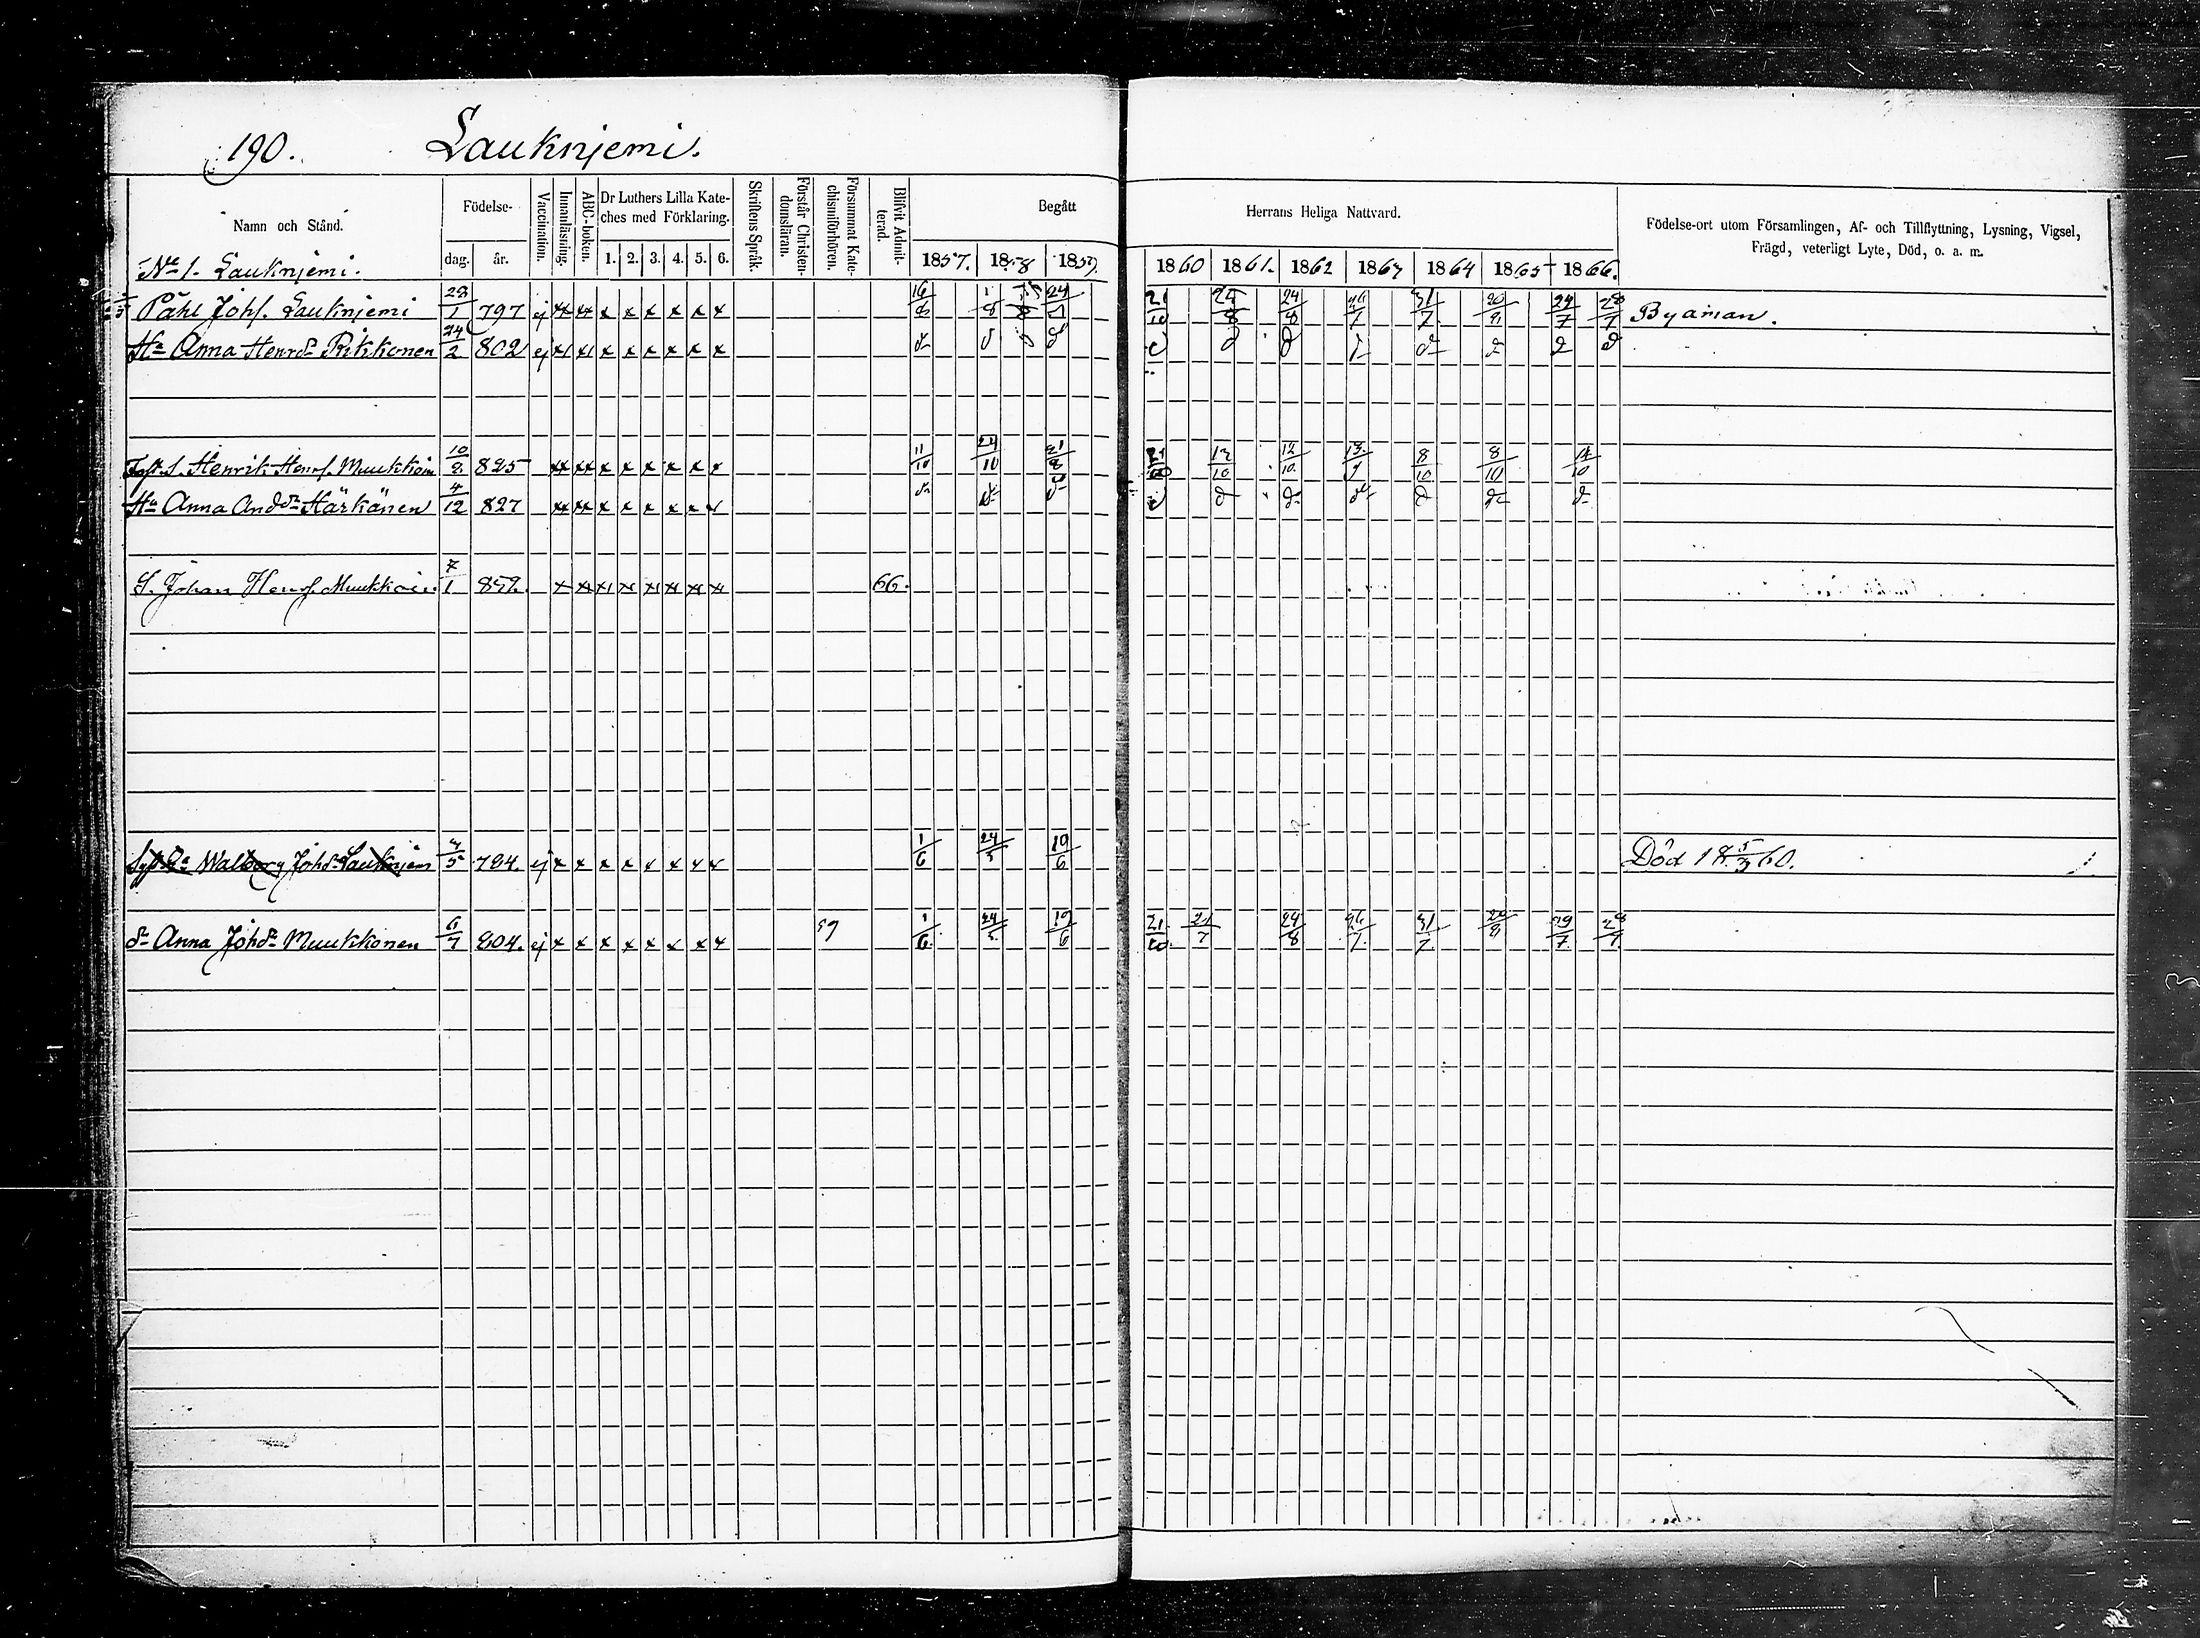 190. Lauknjemi.
Namn och Stånd. Födelse- dag. år. Vaccination. Innanläsning. ABC-boken. Dr Luthers Lilla Kate-ches med Förklaring. 1. 2. 3. 4. 5. 6. Skriftens Språk. Förstår Christen-domsläran. Försummat Kate-chismiförhören. Blifvit Admit-terad. Begått Herrans Heliga Nattvard. Födelse-ort utom Församlingen, Af- och Tillflyttning, Lysning, Vigsel,
Frägd, veterligt Lyte, Död, o. a. m.
1857. 1858 1859. 1860 1861. 1862 1863 1864 1865 1866.
No 1. Lauknjemi.
Påhl Johs. Lauknjemi 28/1 797 ej x x x x x x 16/8 24/7 21/10 24/8 31/7 20/8 29/7 28/7 Byaman.
Ha Anna Henrdr Rikkonen 24/2 802 ej x x x x x x d d d d d d d d
S. Henrik Henrs. Muukkoin 10/8 825 x x x x x x 11/10 24/10 21/8 21/10 13/10 12/10 8/10 8/10 14/10
Ha Anna Anddr Härkänen 4/12 827 x x x x x x d d d d d d
S. Johan Henrs. Muukkoin. 7/1 852. x x x x x x x x 66.
Walborg Johdr Lauknjem 5 794. ej x x x x x x x x 1/6 24/5 19/6 Död 18 5/3 60.
dr Anna Johdr Muukkonen 6/7 804. ej x x x x x x x x 59 1/6 24/5 19/6 21/10 21/7 24/8 26/7 31/7 20/8 29/7 28/7